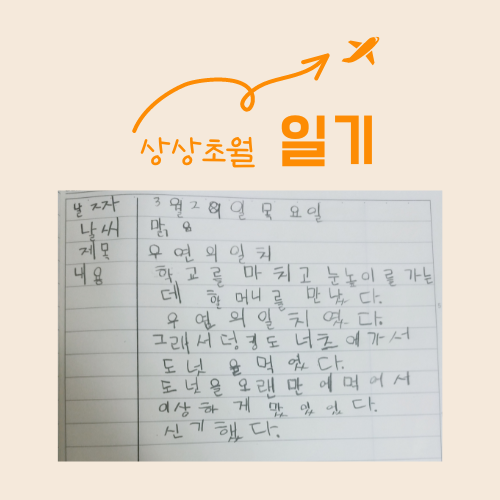 상상초월 일기
날짜 3월 28일 목요일
날씨 맑음
제목 우연의일치
내용 학교를 마치고 눈높이를가는
데 할머니를 만났다.
우연의일치였다.
그래서 던킨도너츠에가서
도넛을먹었다.
도넛을오랜만에먹어서
이상하게 맛있었다.
신기했다.